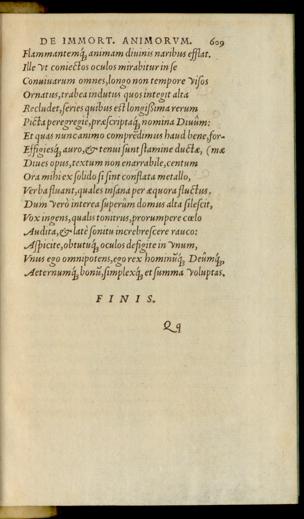 DE IMMORT. ANIMORVM. 609
Flammantemq́, animam diuinis naribus efflat.
Ille vt coniectos oculos mirabitur in se
Conuiuarum omnes, longo non tempore visos
Ornatus, trabea indutus quos integit alta
Recludet, series quibus est longißima rerum
Picta peregregiè, præscriptaq́, nomina Diuûm:
Et quas nunc animo compredimus haud bene, for-
Effigiesq́, auro, & tenui sunt stamine ductæ, (mæ
Diues opus, textum non enarrabile, centum
Ora mihi ex solido si sint conflata metallo,
Verba fluant, quales insana per æquora fluctus.
Dum verò interea superûm domus alta silescit,
Vox ingens, qualis tonitrus, prorumpere cælo
Audita, & latè sonitu increbrescere rauco:
Aspicite, obtutuq́, oculos defigite in vnum,
Vnus ego omnipotens, ego rex hominûq́, Deûmq́,
Aeternumq́, bonũ, simplexq́, et summa voluptas.
FINIS.
Qq